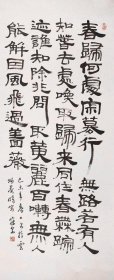 春歸何處寂寞無行路若有人
知春去處喚取歸來同住春無蹤
迹誰知除非問取黃鸝百囀無人
能解因風飛過薔薇